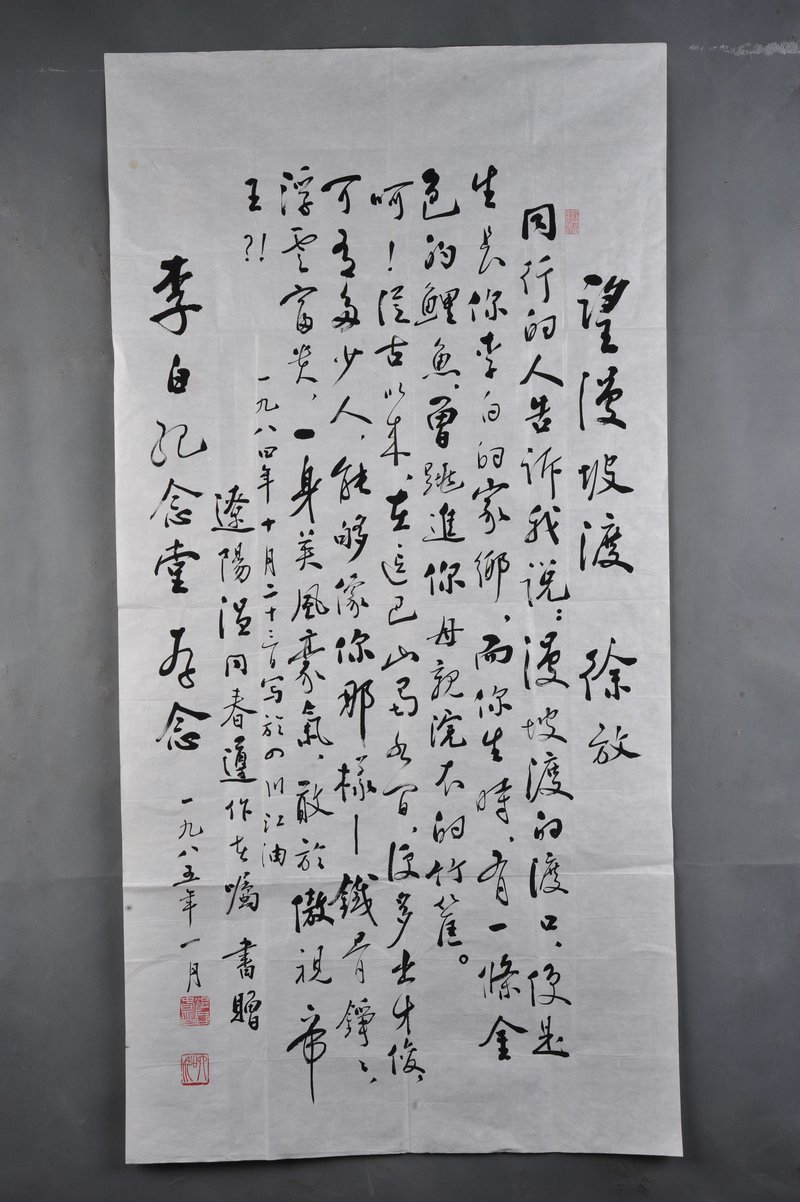 望漫坡渡 徐放
同行的人告訴我説：漫坡渡的渡口、便是
生長你李白的家鄉，而你生時，有一條金
色的鯉魚，曾跳進你母親浣衣的竹筐。
呵！從古以来，在這巴山蜀水間，便多出才俊，
可有多少人，能够像你那樣—鐵骨錚々、
浮雲富贵，一身英風豪氣，敢於傲視帝
王?!
一九八四年十月二十三日写於四川江油
遼陽温同春遵作者嘱書贈
李白紀念堂存念
一九八五年一月